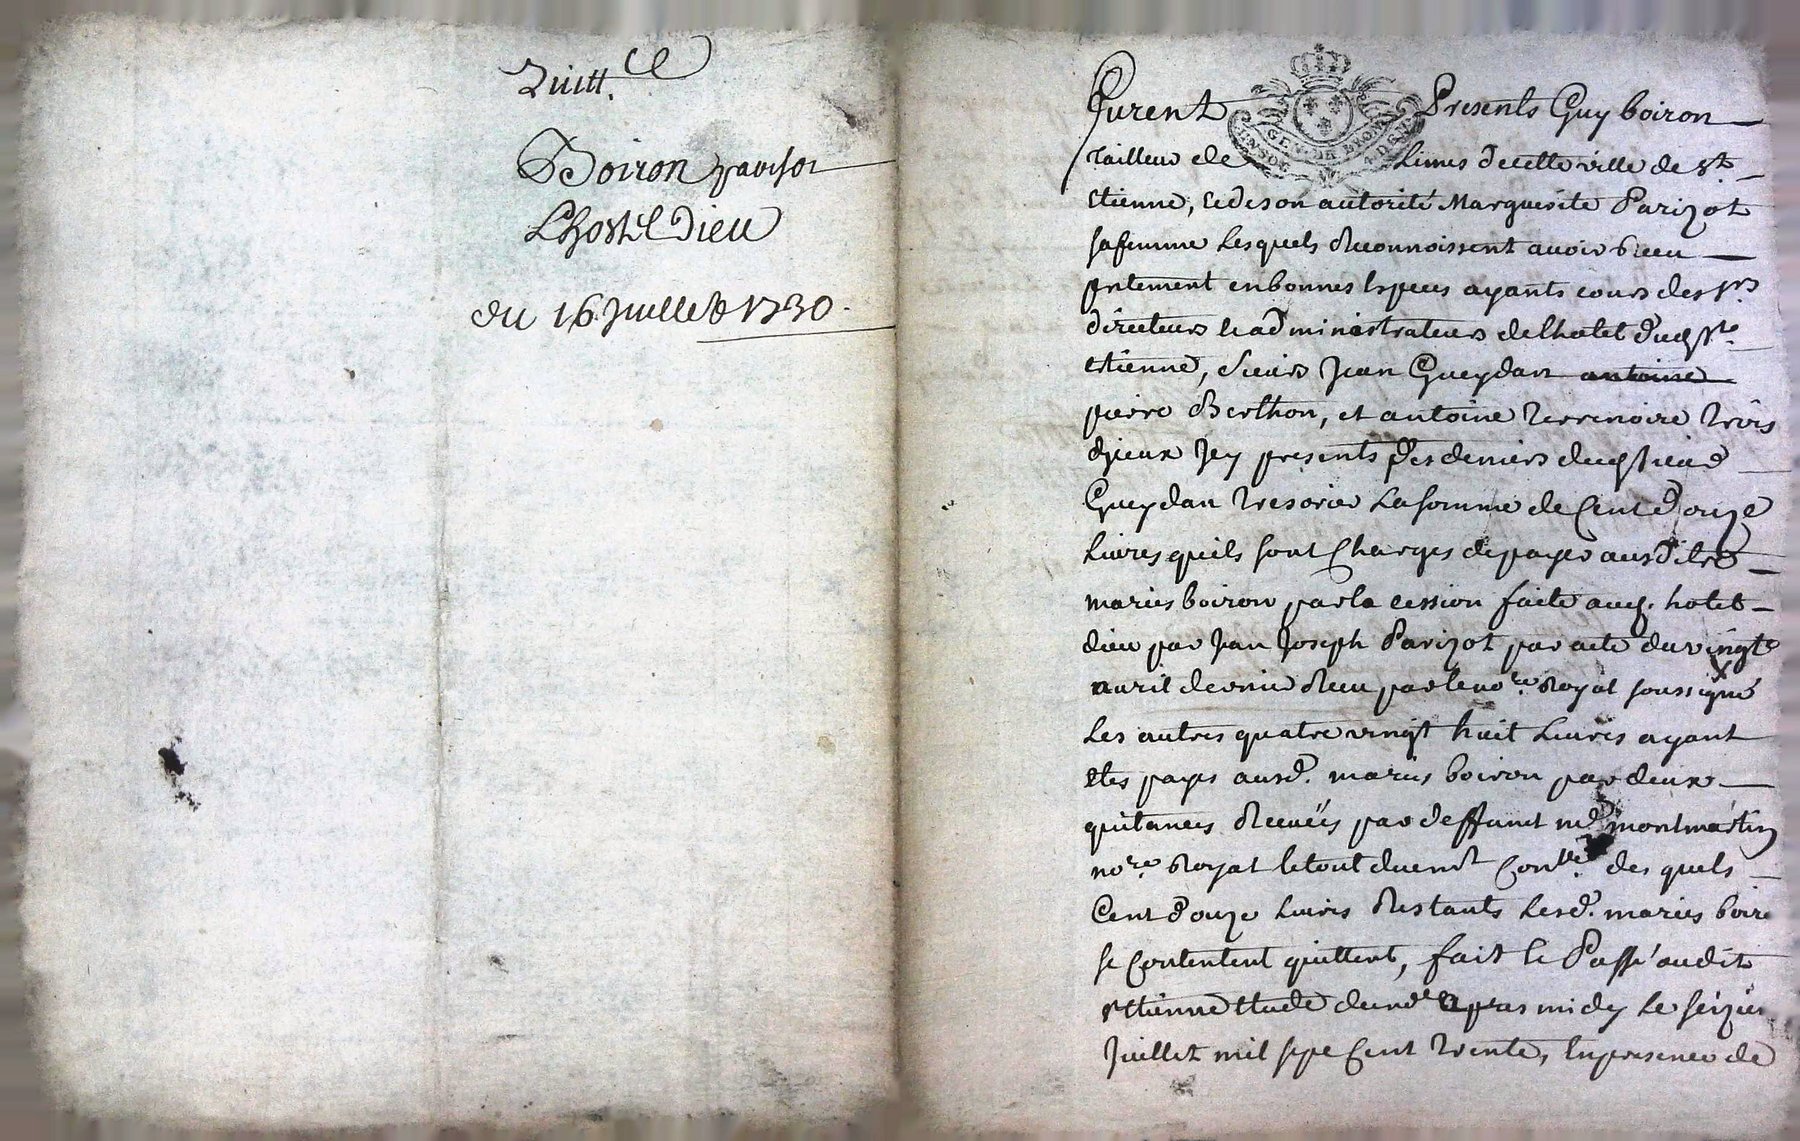 Quitt.ce
Boiron pour sol
L'hostel Dieu
du 16 Juillet 1730.
Furent Presents Guy boiron
GEN DE LYON
tailleur de Limes de cette ville de st
Etienne, & de son autorité Marguerite Parizot
sa femme Lesquels Reconnoissent avoir Receu
pntement en bonnes Especes ayants cours des srs
directeurs & administrateurs de lhotel dud st
estienne, sieurs Jean Gueydan antoine
pierre Berthon, et antoine terrenoire trois
dyceux Jcy presents Des deniers dud sieur
Gueydan tresorier La somme de Cent Douze
Livres quils sont Charges de payer ausdits
maries boiron par la cession faite aud. hotel
dieu par Jean Joseph Parizot par acte du vingt
avril dernier Receu par le nore Royal soussigné
Les autres quatre vingt huit Livres ayant
Etes payes ausd. maries boiron par deux
quitances Receues par deffunt me montmartin
nore Royal le tout duemt Conle des quels
Cent Douze Livres Restants Lesd. maries boiro
se Contentent quittent, fait & Passé audit
st Etienne Etude dud nre apras midy Le seizie
Juillet mil sept Cent trente, En presence de